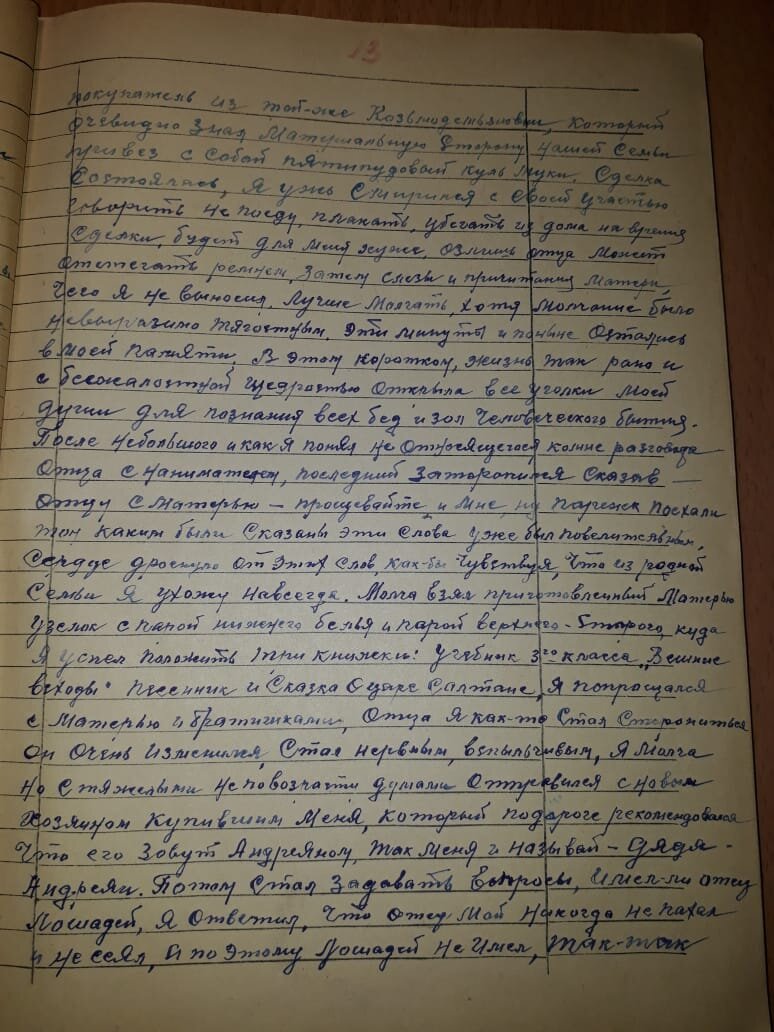 13
покупатель из той-же Козьмодемьяновки, который
очевидно зная Материальную Сторону Нашей Семьи
привез с собой пятипудовый куль муки. Сделка
Состоялась, Я ужь Смирился с Своей участью
Говорить не поеду, плакать, убегать из дома на время
Сделки, будет для меня хуже, озлишь отца Может
отстегать ремнем, Затем слезы и причитания Матери,
Чего Я Не выносил. Лучше Молчать, хотя Молчание было
Невыразимо тягостным, эти минуты и поныне Остались
в моей Памяти. В этом коротком, жизнь так рано и
с безжалостной щедростью Открыла все уголки Моей
души для познания всех бед и зол Человеческого бытия.
После Небольшого и как Я понял Не Относящегося комне разговора
Отца с Нанимателем, последний Заторопился Сказав —
Отцу с Матерью — прощевайте и Мне, ну Паренек поехали
тон каким были Сказаны эти Слова уже был повелительным,
Сердце дрогнуло От этих Слов, как-бы Чувствуя, Что из родной
Семьи Я ухожу Навсегда. Молча взял приготовленный Матерью
узелок с парой нижнего белья и парой верхнего - Старого, куда
Я успел Положить три книжки: учебник 3го класса „Вешние
всходы" Песенник и Сказка О царе Салтане, Я попрощался
с Матерью и братишками, Отца Я как-то Стал Сторониться
Он Очень Изменился, Стал нервным, вспыльчивым, Я Молча
Но с тяжелыми Не по возрасти думами Отправился с Новым
Хозяином Купившим Меня, который подороге рекомендовался
Что его Зовут Андреяном, так меня и называй - Дядя -
Андреян. Потом Стал Задавать Вопросы, Имел-ли отец
Лошадей, Я Ответил, Что Отец Мой Никогда Не пахал
и Не сеял, И по этому Лошадей Не Имел, так-так